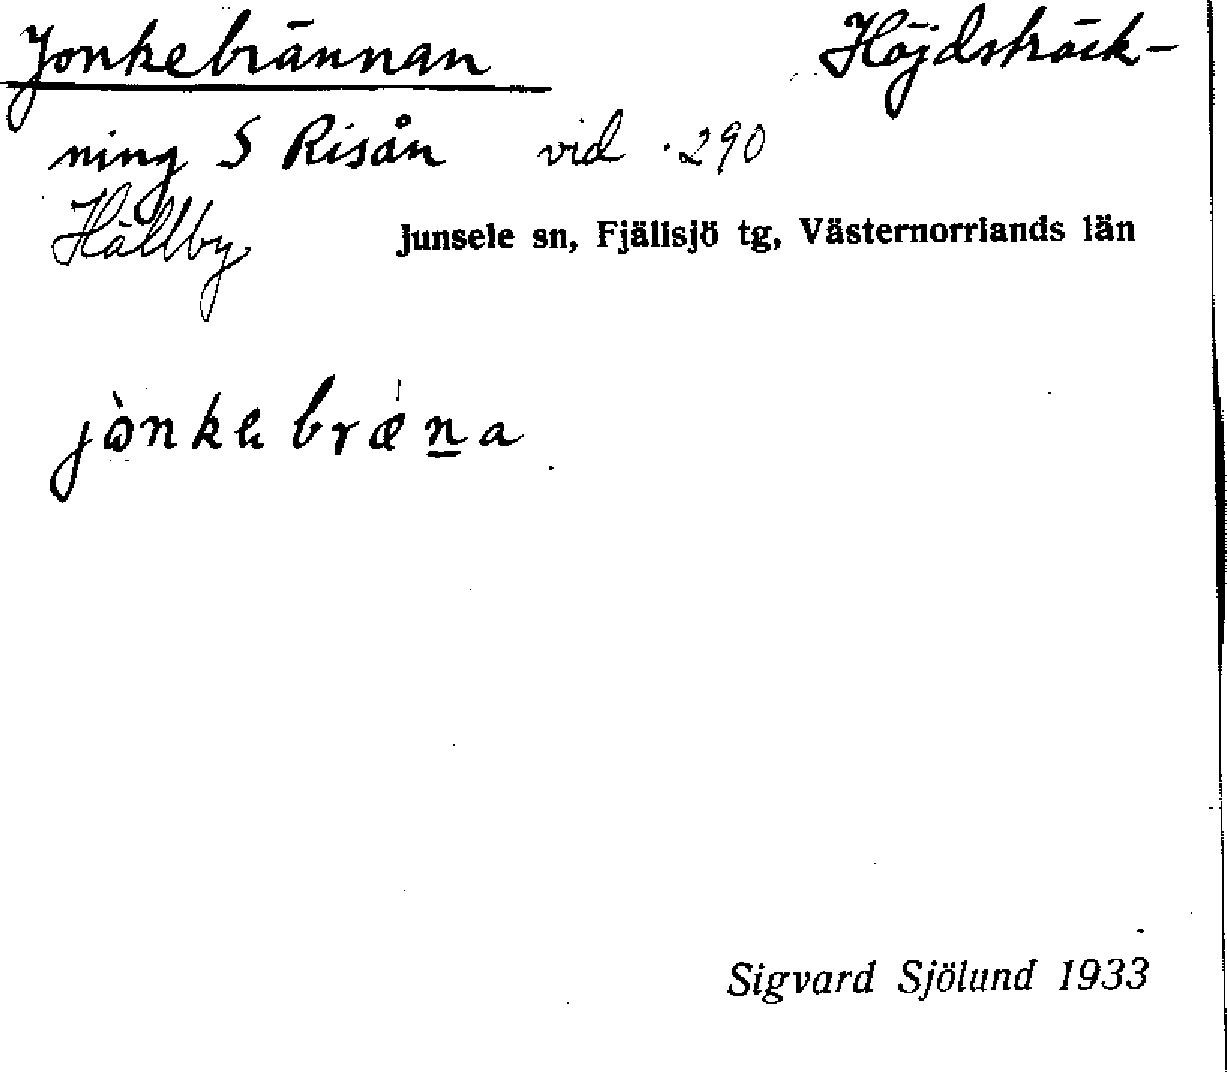 Jonkebrännan Höjdsträck-
ning S Risån vid .290
Hällby Junsele sn, Fjällsjö tg, Västernorrlands län
jònkebrǽn̲a
Sigvard Sjölund 1933